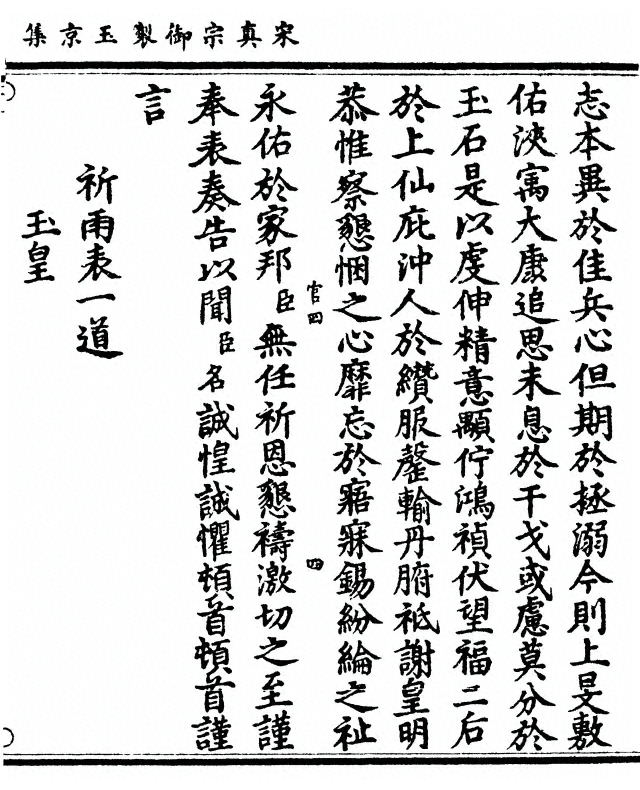 宋真宗御製玉京集
志本異於佳兵心但期於拯溺今則上旻敷
佑浹寓大康追思未息於干戈或慮莫分於
玉石是以虔伸精意顒佇鴻禎伏望福二后
於上仙庇沖人於纘服罄輸丹腑祇謝皇明
恭惟察懇悃之心靡忘於寤寐錫紛綸之祉
官四
四
永佑於家邦臣無任祈恩懇禱激切之至謹
奉表奏告以聞臣名誠惶誠懼頓首頓首謹
言
祈雨表一道
玉皇